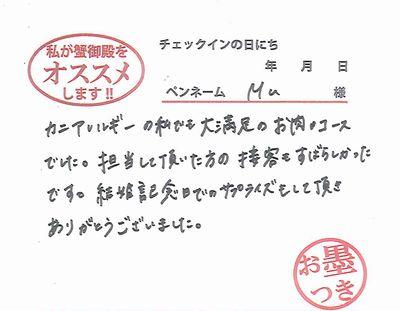 私が蟹御殿を
オススメ
します!!
チェックインの日にち
年 月 日
ペンネーム Mu 様
カニアレルギーの私でも大満足のお肉のコース
でした。担当して頂いた方の接客もすばらしかった
です。結婚記念日でのサプライズもして頂き
ありがとうございました。
お墨
つき